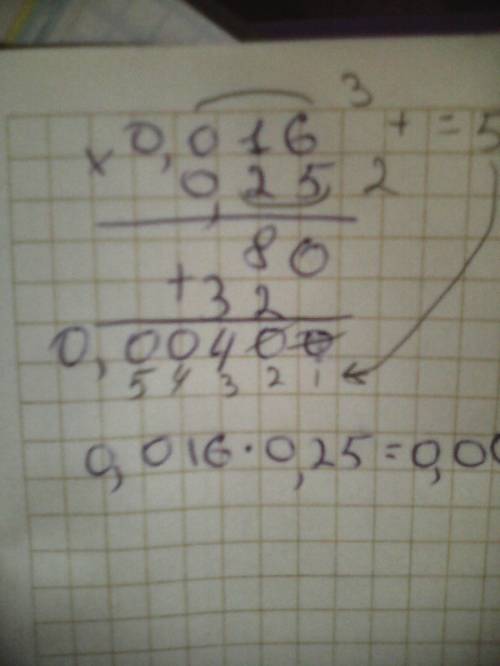 3
0,016 + = 5
× 0,25 2
80
+ 32
0,00400
5 4 3 2 1
0,016 · 0,25 = 0,00